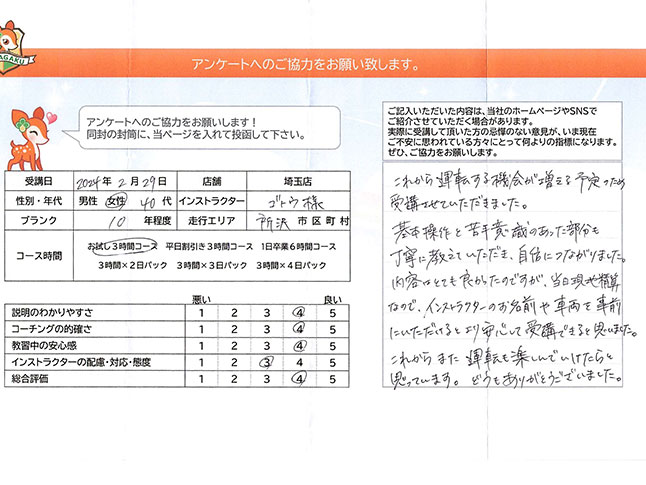 アンケートへのご協力をお願い致します。
アンケートへのご協力をお願いします！
同封の封筒に、当ページを入れて投函して下さい。
ご記入いただいた内容は、当社のホームページやSNSで
ご紹介させていただく場合があります。
実際に受講して頂いた方の忌憚のない意見が、いま現在
ご不安に思われている方々にとって何よりの指標になります。
ぜひ、ご協力をお願いします。
受講日 2024年 2月 29日 店舗 埼玉店
性別・年代 男性 女性 40代 インストラクター ゴトウ様
ブランク 10 年程度 走行エリア 所沢 市区町村
コース時間 お試し3時間コース 平日割引き3時間コース 1日卒業6時間コース
3時間×2日パック 3時間×3日パック 3時間×4日パック
悪い 良い
説明のわかりやすさ 1 2 3 4 5
コーチングの的確さ 1 2 3 4 5
教習中の安心感 1 2 3 4 5
インストラクターの配慮・対応・態度 1 2 3 4 5
総合評価 1 2 3 4 5
これから運転する機会が増える予定のため
受講させていただきました。
基本操作と苦手意識のあった部分も
丁寧に教えていただき、自信につながりました。
内容はとても良かったのですが、当日現地精算
なので、インストラクターのお名前や車両を事前
にいただけるとより安心して受講できると思いました。
これからまた運転も楽しんでいけたらと
思っています。どうもありがとうございました。